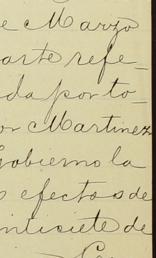 e Marzo
arte refe_
da por to_
or Martinez
Gobierno la
s efectos de
intisiete de